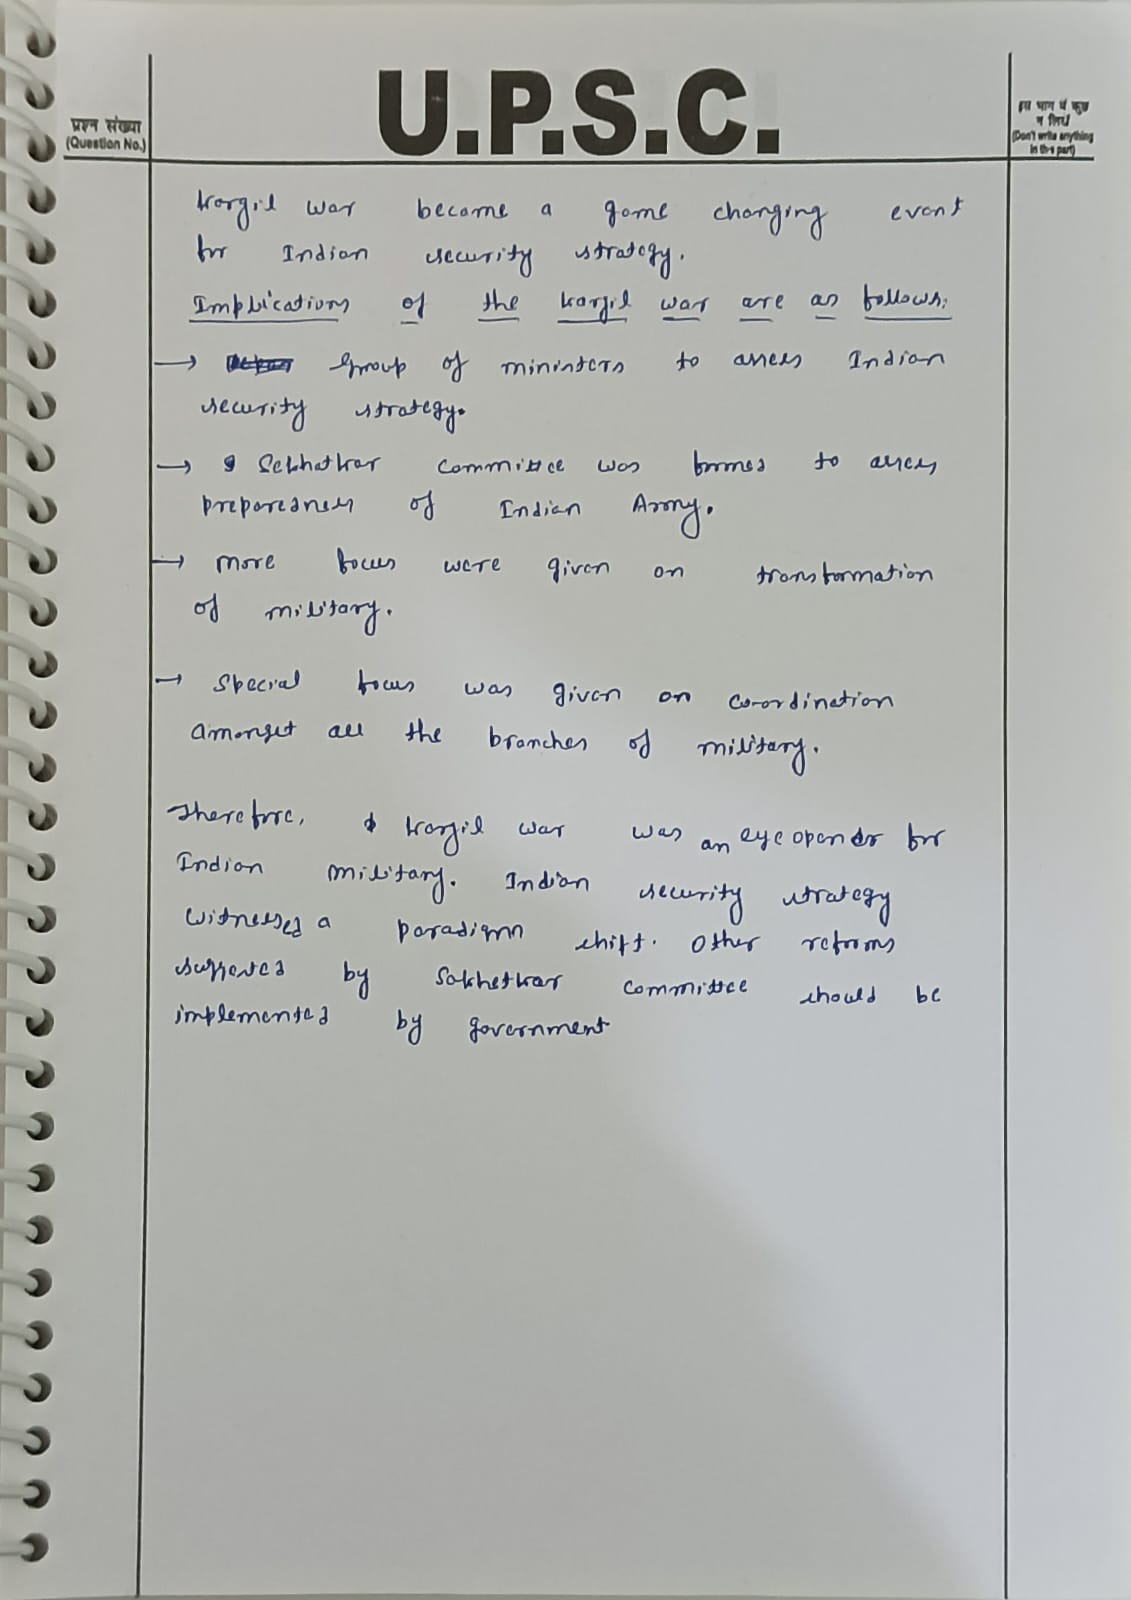 U.P.S.C.
प्रश्न संख्या
(Question No.)
इस भाग में कुछ
न लिखें
(Don't write anything
in this part)
Kargil war became a game changing event
for Indian security strategy.
Implications of the kargil war are as follows:
→ Group of ministers to assess Indian
security strategy.
→ Sekhatkar committee was formed to assess
preparedness of Indian Army.
→ More focus were given on transformation
of military.
→ Special focus was given on co-ordination
amongst all the branches of military.
Therefore, kargil war was an eye opener for
Indian military. Indian security strategy
witnessed a paradigm shift. Other reforms
suggested by Sekhetkar committee should be
implemented by government